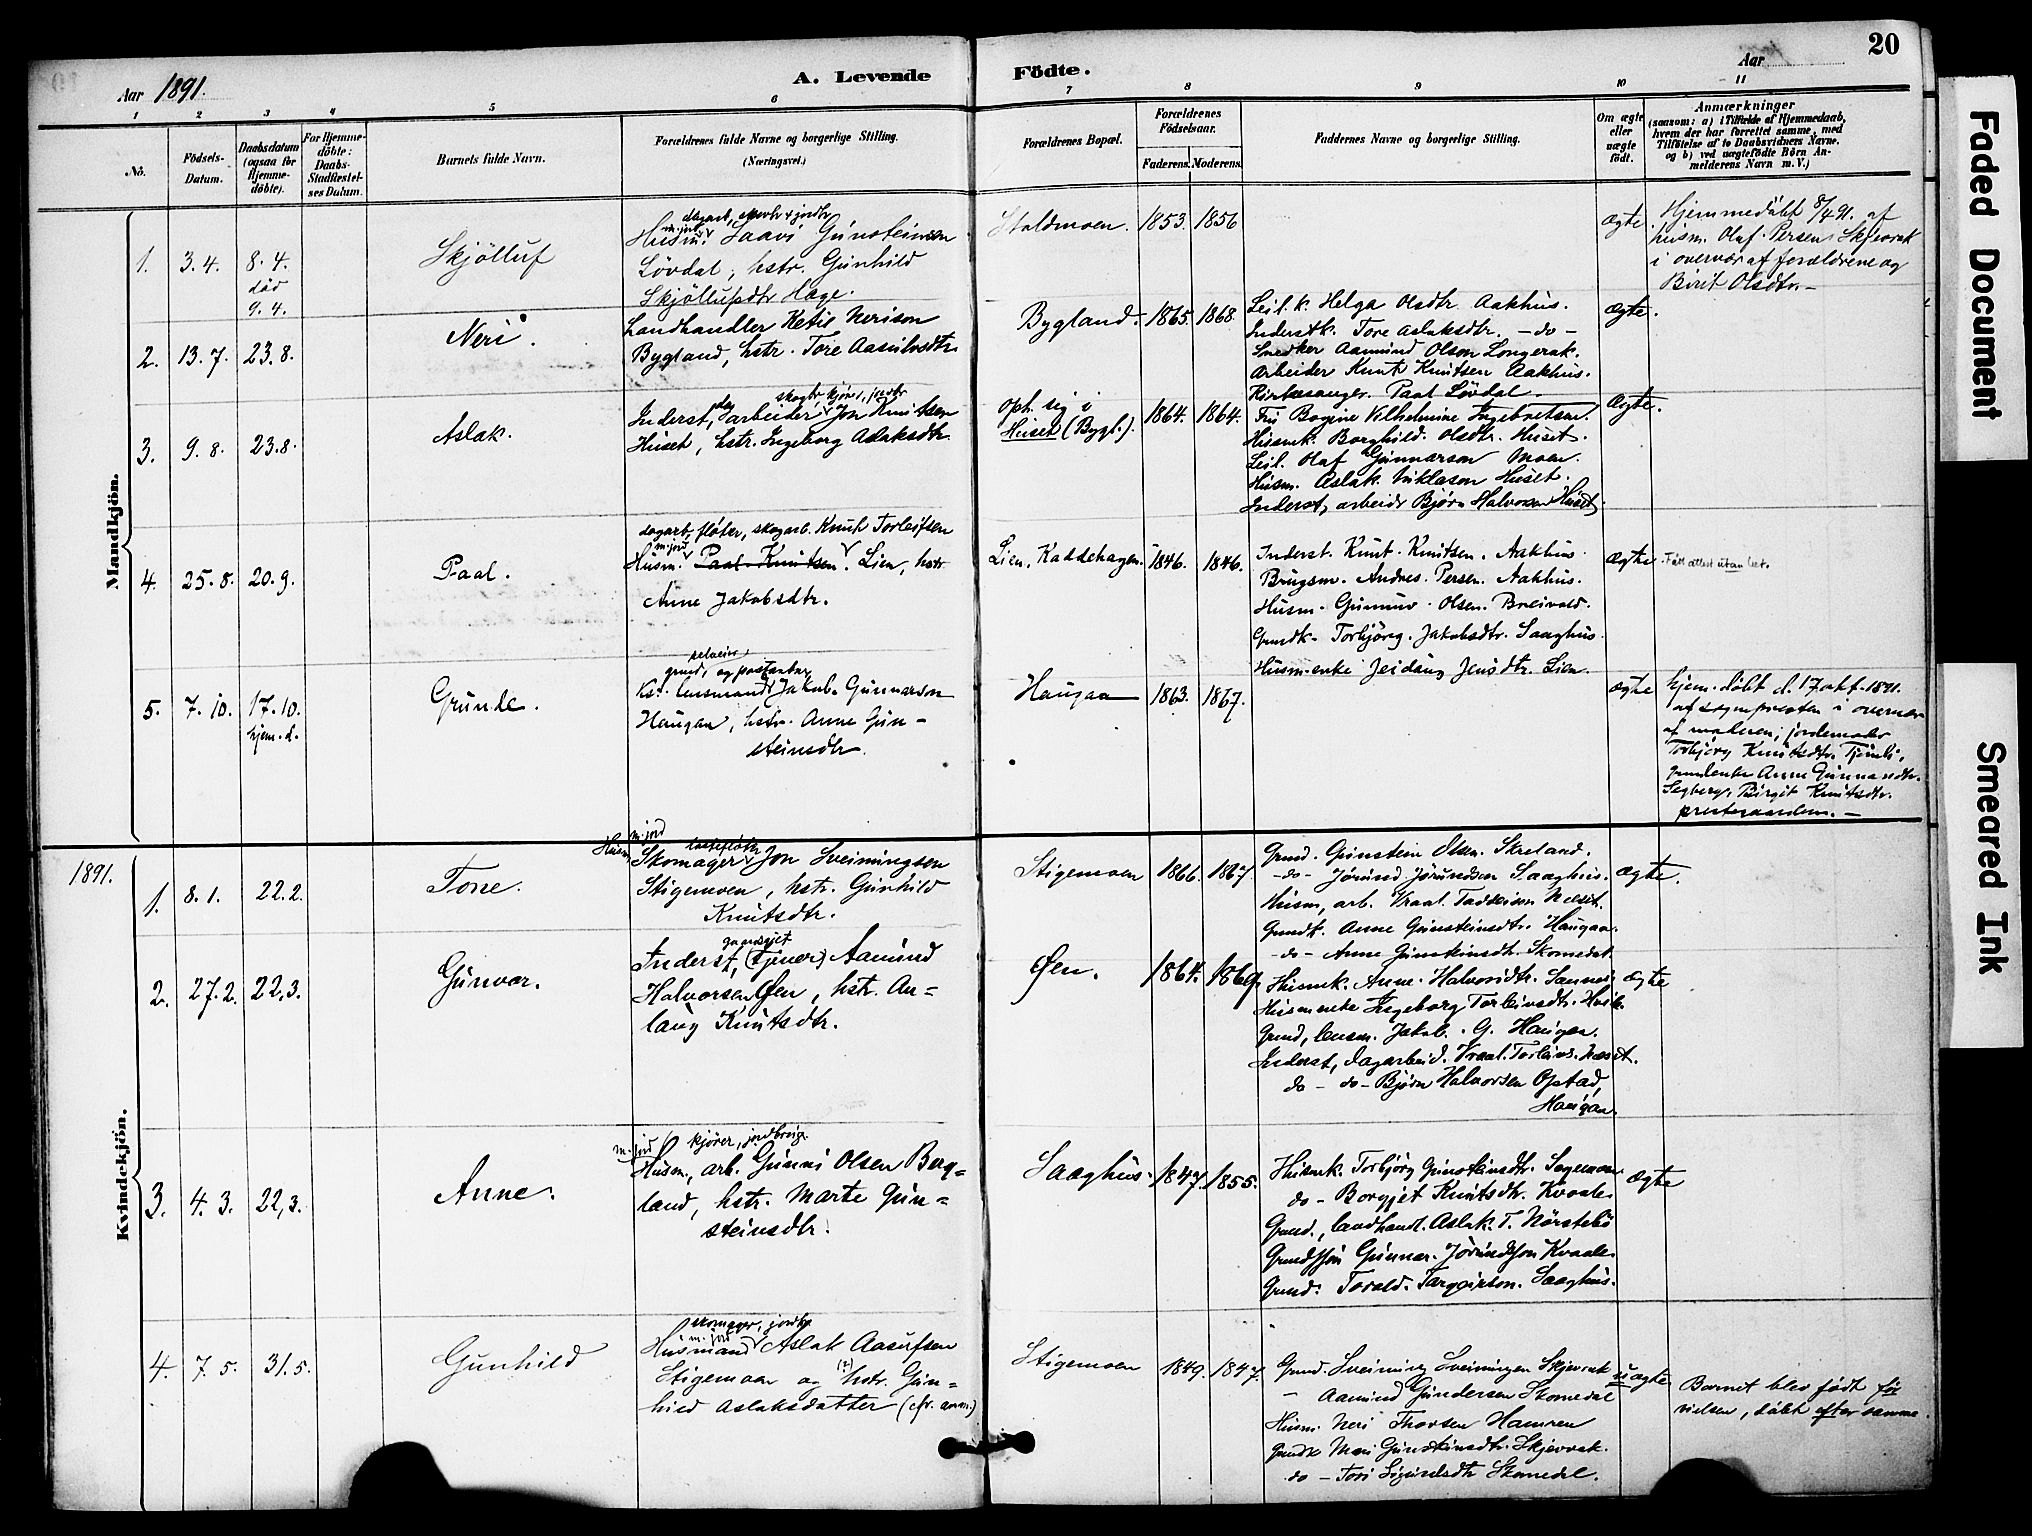 20
Aar 1891.
A. Levende Födte.
Aar
1 2 3 4 5 6 7 8 9 10 11
No.
Födsels-Datum.
Daabsdatum (ogsaa for Hjemmedöbte).
For Hjemmedöbte: Daabs-Stadfæstelses Datum.
Barnets fulde Navn.
Forældrenes fulde Navne og borgerlige Stilling. (Næringsvei.)
Forældrenes Bopæl.
Forældrenes Födselsaar.
Faderens. Moderens.
Faddernes Navne og borgerlige Stilling.
Om ægte eller uægte födt.
Anmærkninger
(saasom: a) i Tilfælde af Hjemmedaab,
hvem der har forrettet samme, med
Tilföielse af to Daabsvidners Navne,
og b) ved uægtefödte Börn An-
melderens Navn m. V.)
Mandkjön.
1. 3.4. 8.4. död 9.4.
Skjölluf
dagarb,
m. jord
Husm. Taavi Gunsteinsen
Lövdal, hstr. Gunhild
Skjöllufsdtr Hage.
Staldmoen. 1853. 1856
ægte
Hjemmedöbt 8/4 91. af
husm. Olaf Persen Skjevrak
i overvær af forældrene og
Birit Olsdtr. –
2. 13.7. 23.8.
Neri.
Landhandler Ketil Nerison
Bygland, hstr. Tore Aasulvsdtr.
Bygland. 1865. 1868.
Leil.k. Helga Olsdtr. Aakhus.
Inderstk. Tore Aslaksdtr. – do –
Snedker Aamund Olson Longerak.
Arbeider Knut Knutsen Aakhus.
Kirkesanger Paal Lövdal
ægte.
3. 9.8. 23.8.
Aslak.
Inderst, dagarbeider Jon Knutsen
Huset, hstr. Ingeborg Aslaksdtr.
oph. sig i
Huset (Bygl.). 1864. 1864.
Fru Bogine Vilhelmine Ingebretsen.
Husmk. Borghild Olsdtr. Huset.
Leil. Olaf Gunnarson Moen.
Husm. Aslak Niklason Huset.
Inderst, arbeidr Bjørn Halvorsen Huset
ægte.
4. 25.8. 20.9.
Paal.
dagarb, fløter, skogarb. Knut Torleifsen
m. jord
Husm. Paal Knutsen. Lien, hstr
Anne Jakobsdtr.
Lien, Kaddehagen. 1846. 1846.
Inderst. Knut Knutsen. Aakhus.
Brugsm. Andres Persen. Aakhus.
Husm. Gunnuv Olsen. Breivold.
Grundk. Torbjörg Jakobsdtr. Saaghus.
Husmenke Jeidaug Jensdtr. Lien.
ægte
5. 7.10. 17.10. hjem.d.
Grunde.
selveier,
Ks. lensmand, Jakob Gunnarson
Haugaa, hstr. Anne Gun-
steinsdtr.
Haugaa 1863. 1867.
ægte
hjem. döbt d. 17 okt. 1891.
af sognpresten i overvær
af moderen, jordemoder
Torbjörg Knutsdtr.
Anne Gunnarsdtr.
Birgit Knutsdtr.
prestegaarden. –
1891.
Kvindekjön.
1. 8.1. 22.2.
Tone.
Husm. m. jord
Skomager Jon Sveinungsen
Stigemoen, hstr. Gunhild
Knutsdtr.
Stigemoen 1866. 1867.
Grund. Gunstein Olsen. Skreland.
– do – Jörund Jörundsen Saaghus.
Husm, arb. Vraal Tadseison Neset.
Grundk. Anne Gunsteinsdtr. Haugaa.
– do – Anne Gunsteinsdtr. Skomedal.
ægte.
2. 27.2. 22.3.
Gunvor.
Inderst, (Tjener) Aamund
Halvorsen Øen, hstr. An-
laug Knutsdtr.
Øen. 1864. 1869
Husmk. Anne Halvorsdtr. Sannes
Husmenke Ingeborg Torleivsdtr.
Grund, lensm. Jakob G. Haugaa.
Inderst, dagarbeid. Vraal Torleivs. Næset.
do – do – Bjørn Halvorsen Opstad,
Haugaa.
ægte
3. 4.3. 22.3.
Anne.
m. jord kjører, jordbrug.
Husm., arb. Gunni Olsen Berg-
land, hstr. Marte Gun-
steinsdtr.
Saaghus. 1847. 1855.
Husmk. Torbjörg Gunsteinsdtr. Sagemoen
do – Borgjet Knutsdtr. Kvaale.
Grund., landhandl. Aslak T. Nörstebö
Grundssön Gunnar Jörundsson Kvaale.
Grund. Torald Targeirson. Saaghus.
ægte
4. 7.5. 31.5.
Gunhild
skomager, jordbr
m. jord
Husmand Aslak Aasulfsen
Stigemoen og hstr. Gun-
hild Aslaksdatter (cfr. anm.)
Stigemoen 1849. 1847.
Grund. Sveinung Sveinungsen Skjevrak
– Aamund Gundersen Skomedal
Husm. Neri Thorsen Hamren
Grundk Mari Gunsteinsdtr. Skjevrak.
do – Tori Sigurdsdtr Skomedal.
uægte
Barnet blev födt för
vielsen, döbt efter samme
Faded Document
Smeared Ink